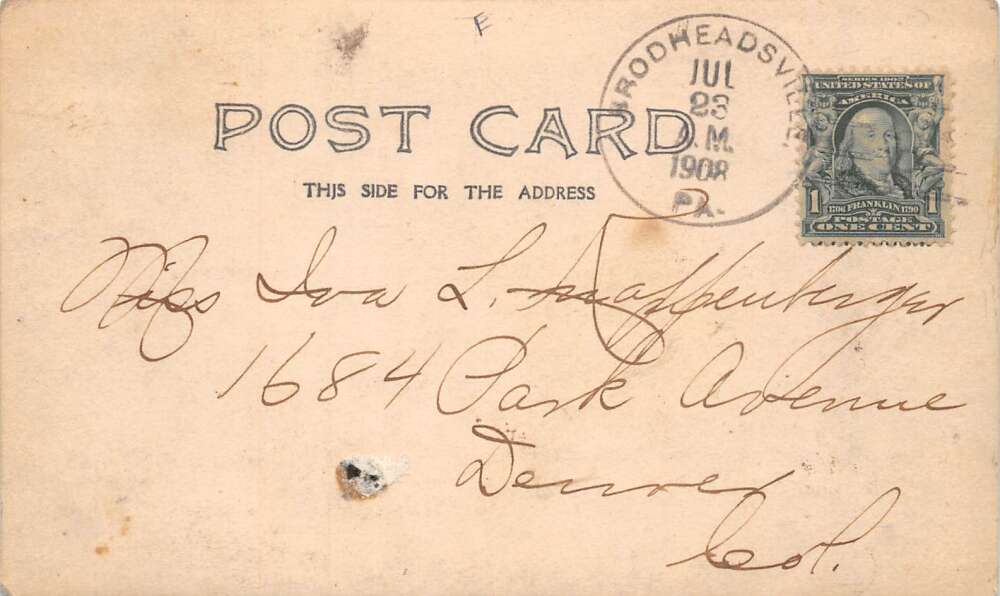 E
BRODHEADSVILLE
JUL
23
A.M.
1908
PA.
SERIES 1902
UNITED STATES OF
AMERICA
1 1706 FRANKLIN 1790 1
POSTAGE
ONE CENT
POST CARD
THIS SIDE FOR THE ADDRESS
Miss Iva L.
1684 Park Avenue
Denver
Col.